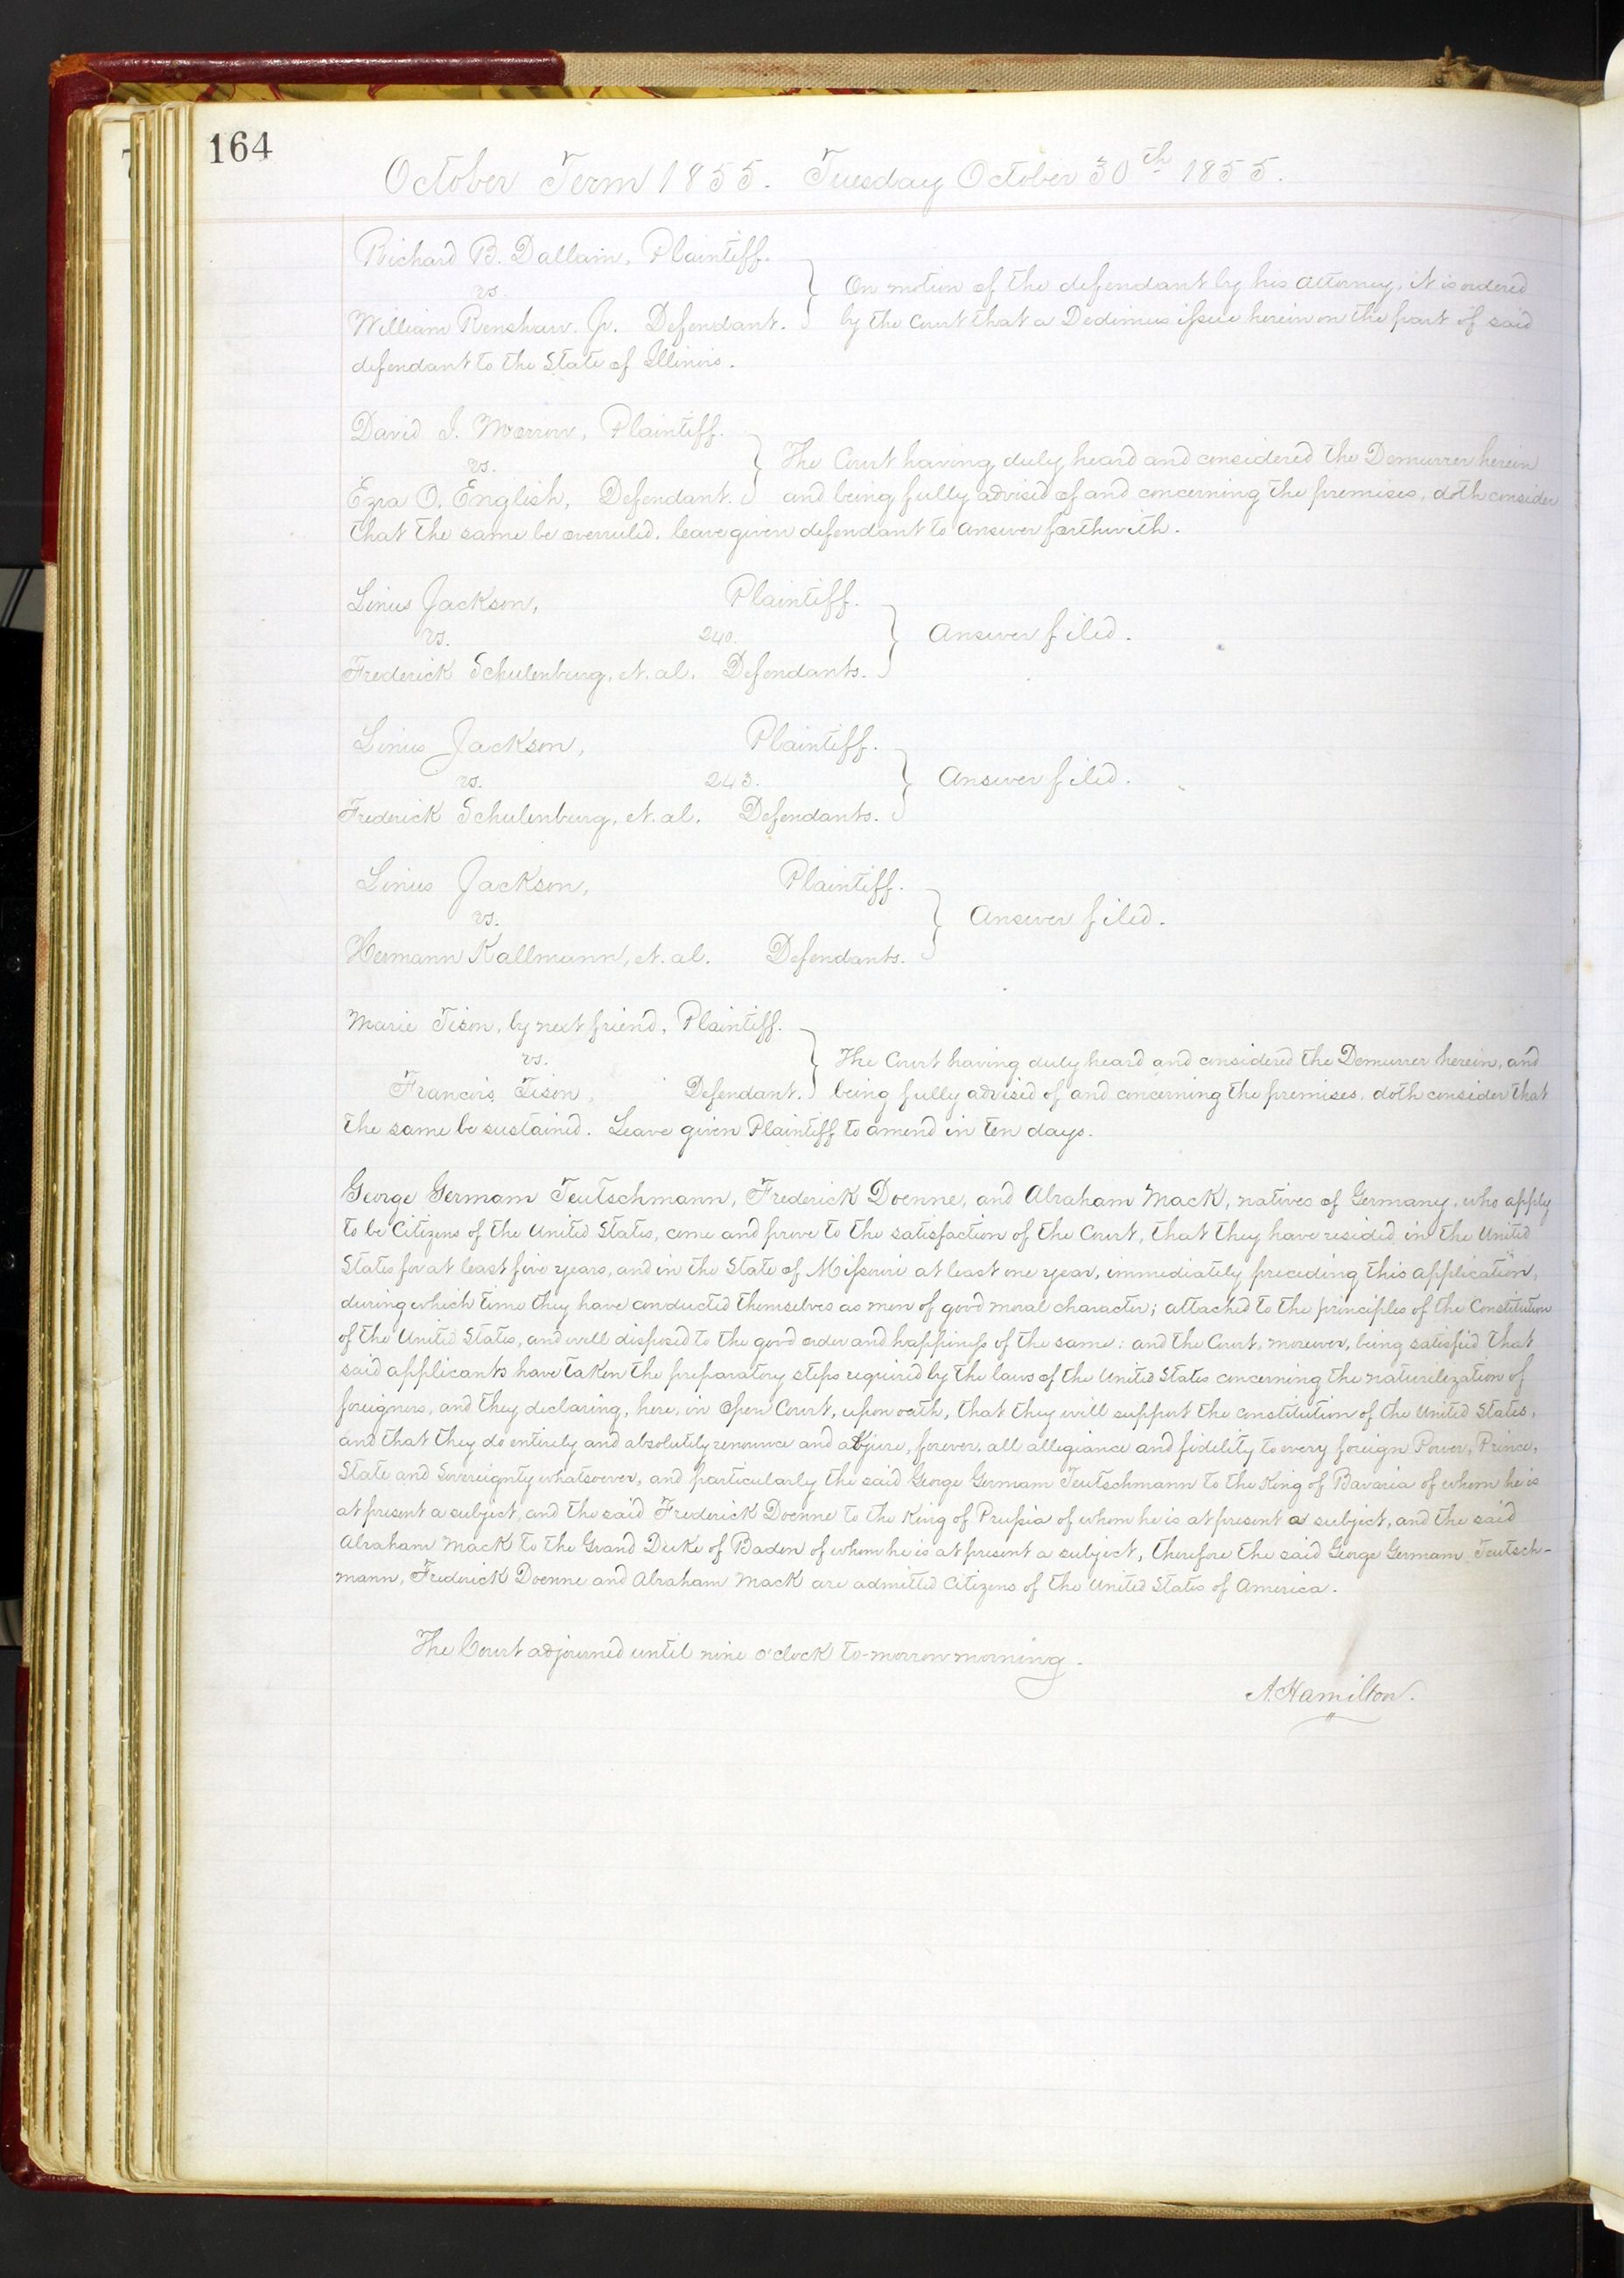 164
October Term 1855. Tuesday October 30th 1855.
Richard B. Dallam, Plaintiff.
vs.
William Renshaw. Jr. Defendant.
On motion of the defendant by his attorney, it is ordered
by the Court that a Dedimus issue herein on the part of said
defendant to the State of Illinois.
David I. Morrow, Plaintiff.
vs.
Ezra O. English, Defendant.
The Court having duly heard and considered the Demurrer herein
and being fully advised of and concerning the premises, doth consider
that the same be overruled. leave given defendant to answer forthwith.
Linus Jackson, Plaintiff.
vs. 240.
Frederick Schulenburg, et. al. Defendants.
Answer filed.
Linus Jackson, Plaintiff.
vs. 243.
Frederick Schulenburg, et. al. Defendants.
Answer filed.
Linus Jackson, Plaintiff.
vs.
Hermann Kallmann, et. al. Defendants.
Answer filed.
Marie Tison, by next friend, Plaintiff.
vs.
Francois Tison, Defendant.
The Court having duly heard and considered the Demurrer herein, and
being fully advised of and concerning the premises, doth consider that
the same be sustained. Leave given Plaintiff to amend in ten days.
George Germam Teutschmann, Frederick Doenne, and Abraham Mack, natives of Germany, who apply
to be Citizens of the United States, come and prove to the satisfaction of the Court, that they have resided in the United
States for at least five years, and in the State of Missouri at least one year, immediately preceding this application,
during which time they have conducted themselves as men of good moral character; attached to the principles of the Constitution
of the United States, and well disposed to the good order and happiness of the same: and the Court, moreover, being satisfied that
said applicants have taken the preparatory steps required by the laws of the United States concerning the naturilization of
foreigners, and they declaring, here, in Open Court, upon oath, that they will support the constitution of the United States,
and that they do entirely and absolutely renounce and abjure, forever, all allegiance and fidelity to every foreign Power, Prince,
State and Sovereignty whatsoever, and particularly the said George Germam Teutschmann to the King of Bavaria of whom he is
at present a subject, and the said Frederick Doenne to the King of Prussia of whom he is at present a subject, and the said
Abraham Mack to the Grand Duke of Baden of whom he is at present a subject, therefore the said George Germam Teutsch-
mann, Frederick Doenne and Abraham Mack are admitted Citizens of the United States of America.
The Court adjourned until nine o'clock to-morrow morning.
A. Hamilton.